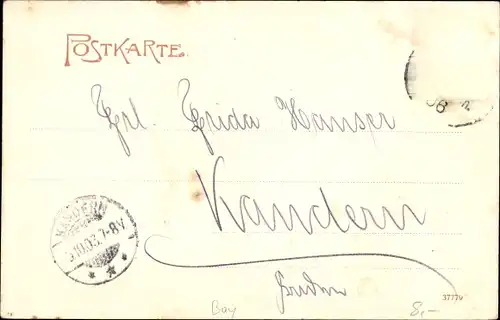 POSTKARTE.
Frl. Frida Hanser
Kandern
KANDERN
.10.03.7-8V
37779
Bay
8,-